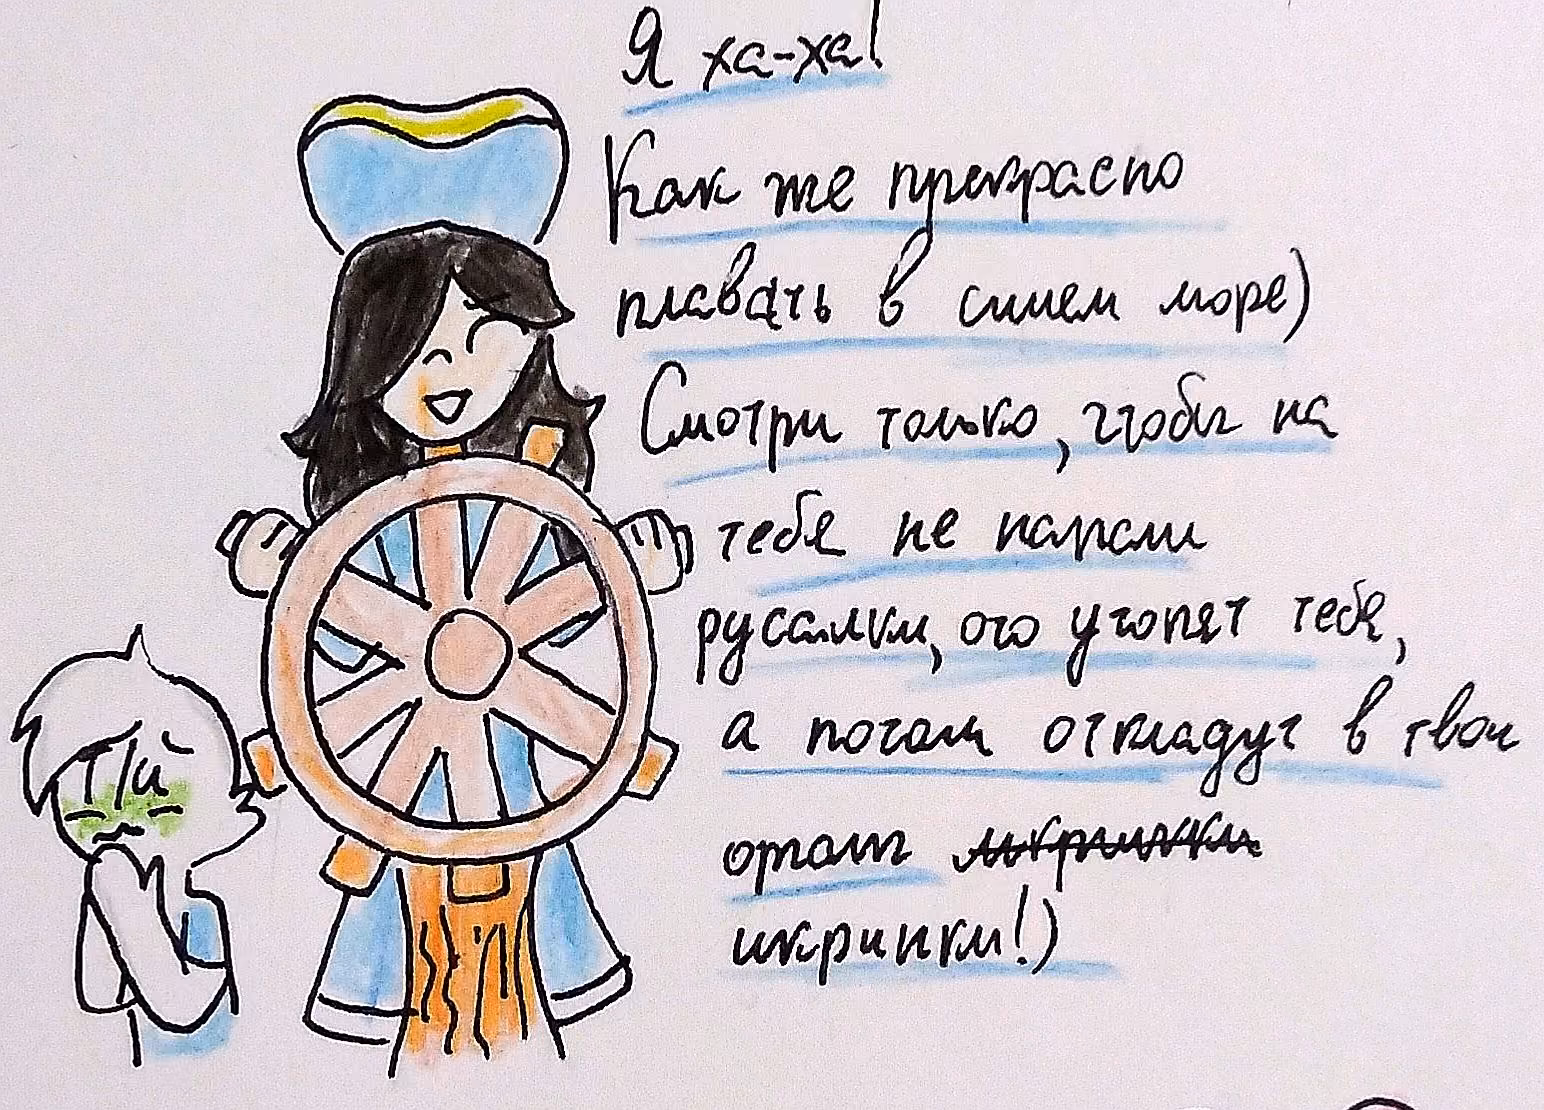 Я ха-ха!
Как же прекрасно
плавать в синем море)
Смотри только, чтобы на
тебя не напали
русалки, ато утопят тебя,
а потом откладут в твои
органы
икринки!)
Т/и